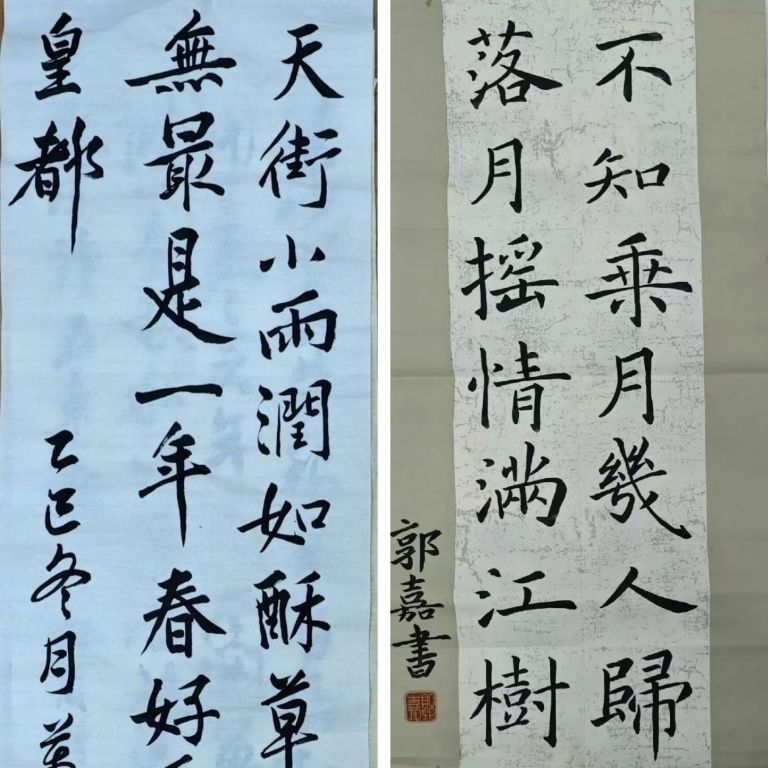 天街小雨潤如酥草
無最是一年春好
皇都
乙巳冬月
不知乘月幾人歸
落月摇情滿江樹
郭嘉書